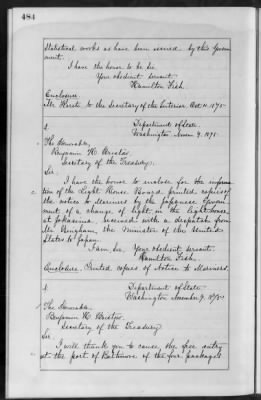 484
Statistical works as have been issued by this Govern-
ment.
I have the honor to be Sir
Your obedient servant
Hamilton Fish.
Enclosure.
to the Secretary of the Interior, Oct 11. 1875.
Department of State.
Washington Novem 9. 1875.
The Honorable,
Benjamin H. Bristow,
Secretary of the Treasury.
Sir:
I have the honor to enclose for the informa-
tion of the Light House Board printed copies of
the notice to Mariners by the Japanese Govern-
ment of a change of light in the lighthouse
at Yokosuka received with a despatch from
Mr Bingham, the Minister of the United
States to Japan.
I am, Sir, Your obedient servant.
Hamilton Fish.
Enclosure. Printed copies of Notice to Mariners.
Department of State.
Washington November 9. 1875.
The Honorable
Benjamin H. Bristow.
Secretary of the Treasury
Sir.
I will thank you to cause the free entry
at the port of Baltimore of the four packages